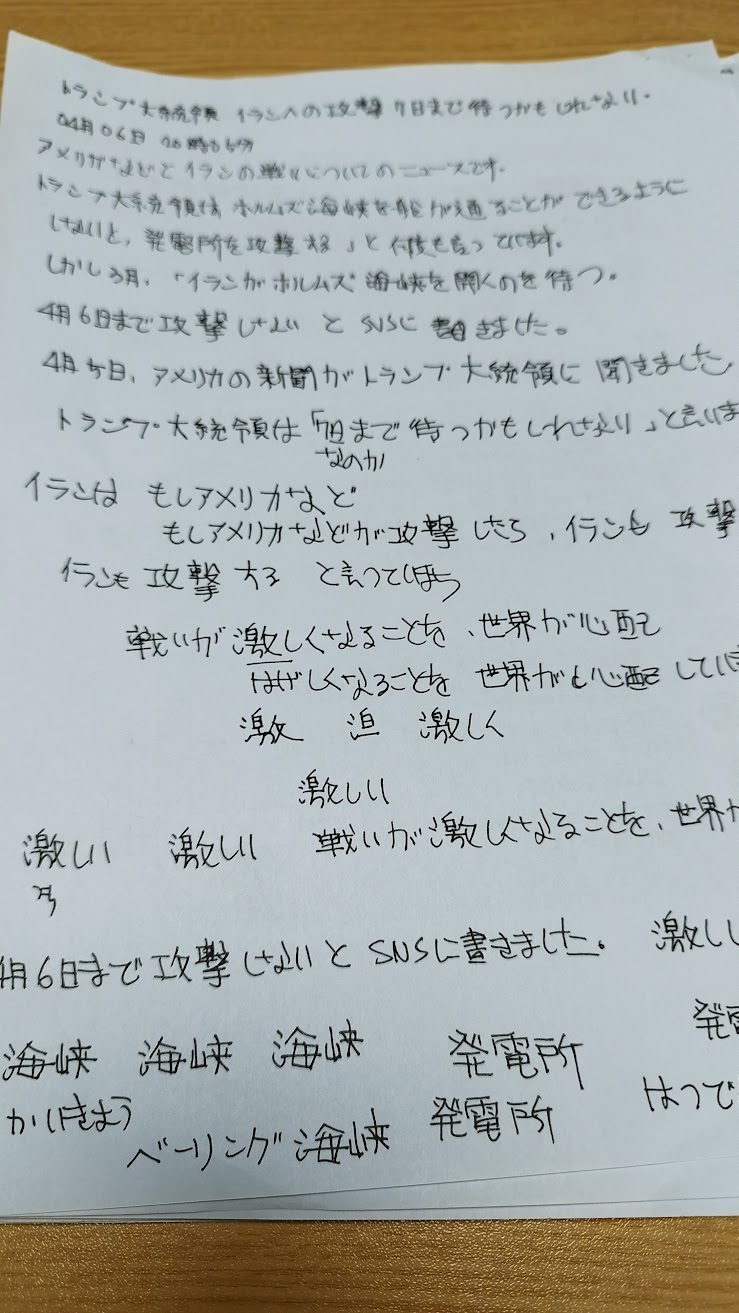 トランプ大統領 イランへの攻撃 7日まで待つかもしれない.
04月06日 20時05分
アメリカなどとイランの戦いについてのニュースです.
トランプ大統領は ホルムズ海峡を船が通ることが できるように
しないと、発電所を攻撃する」と何度も言っています.
しかし 3月、「イランがホルムズ 海峡を開くのを 待つ。
4月6日まで攻撃しない と SNSに 書きました。
4月5日、アメリカの新聞がトランプ大統領に 聞きました
トランプ大統領は「7日まで待つかもしれない」と言いま
なのか
イランは もしアメリカなど
もしアメリカなどが攻撃したら、イランも 攻撃
イランも 攻撃 する と言って
戦いが激しくなることを、世界が心配
はげしくなることを 世界が 心配してい
激 迫 激しく
激しい
激しい 激しい 戦いが激しくなることを、世界
月6日まで攻撃しないと SNSに書きました。 激し
海峡 海峡 海峡 発電所 発電
かいきょう 発電所 はつで
ベーリング海峡